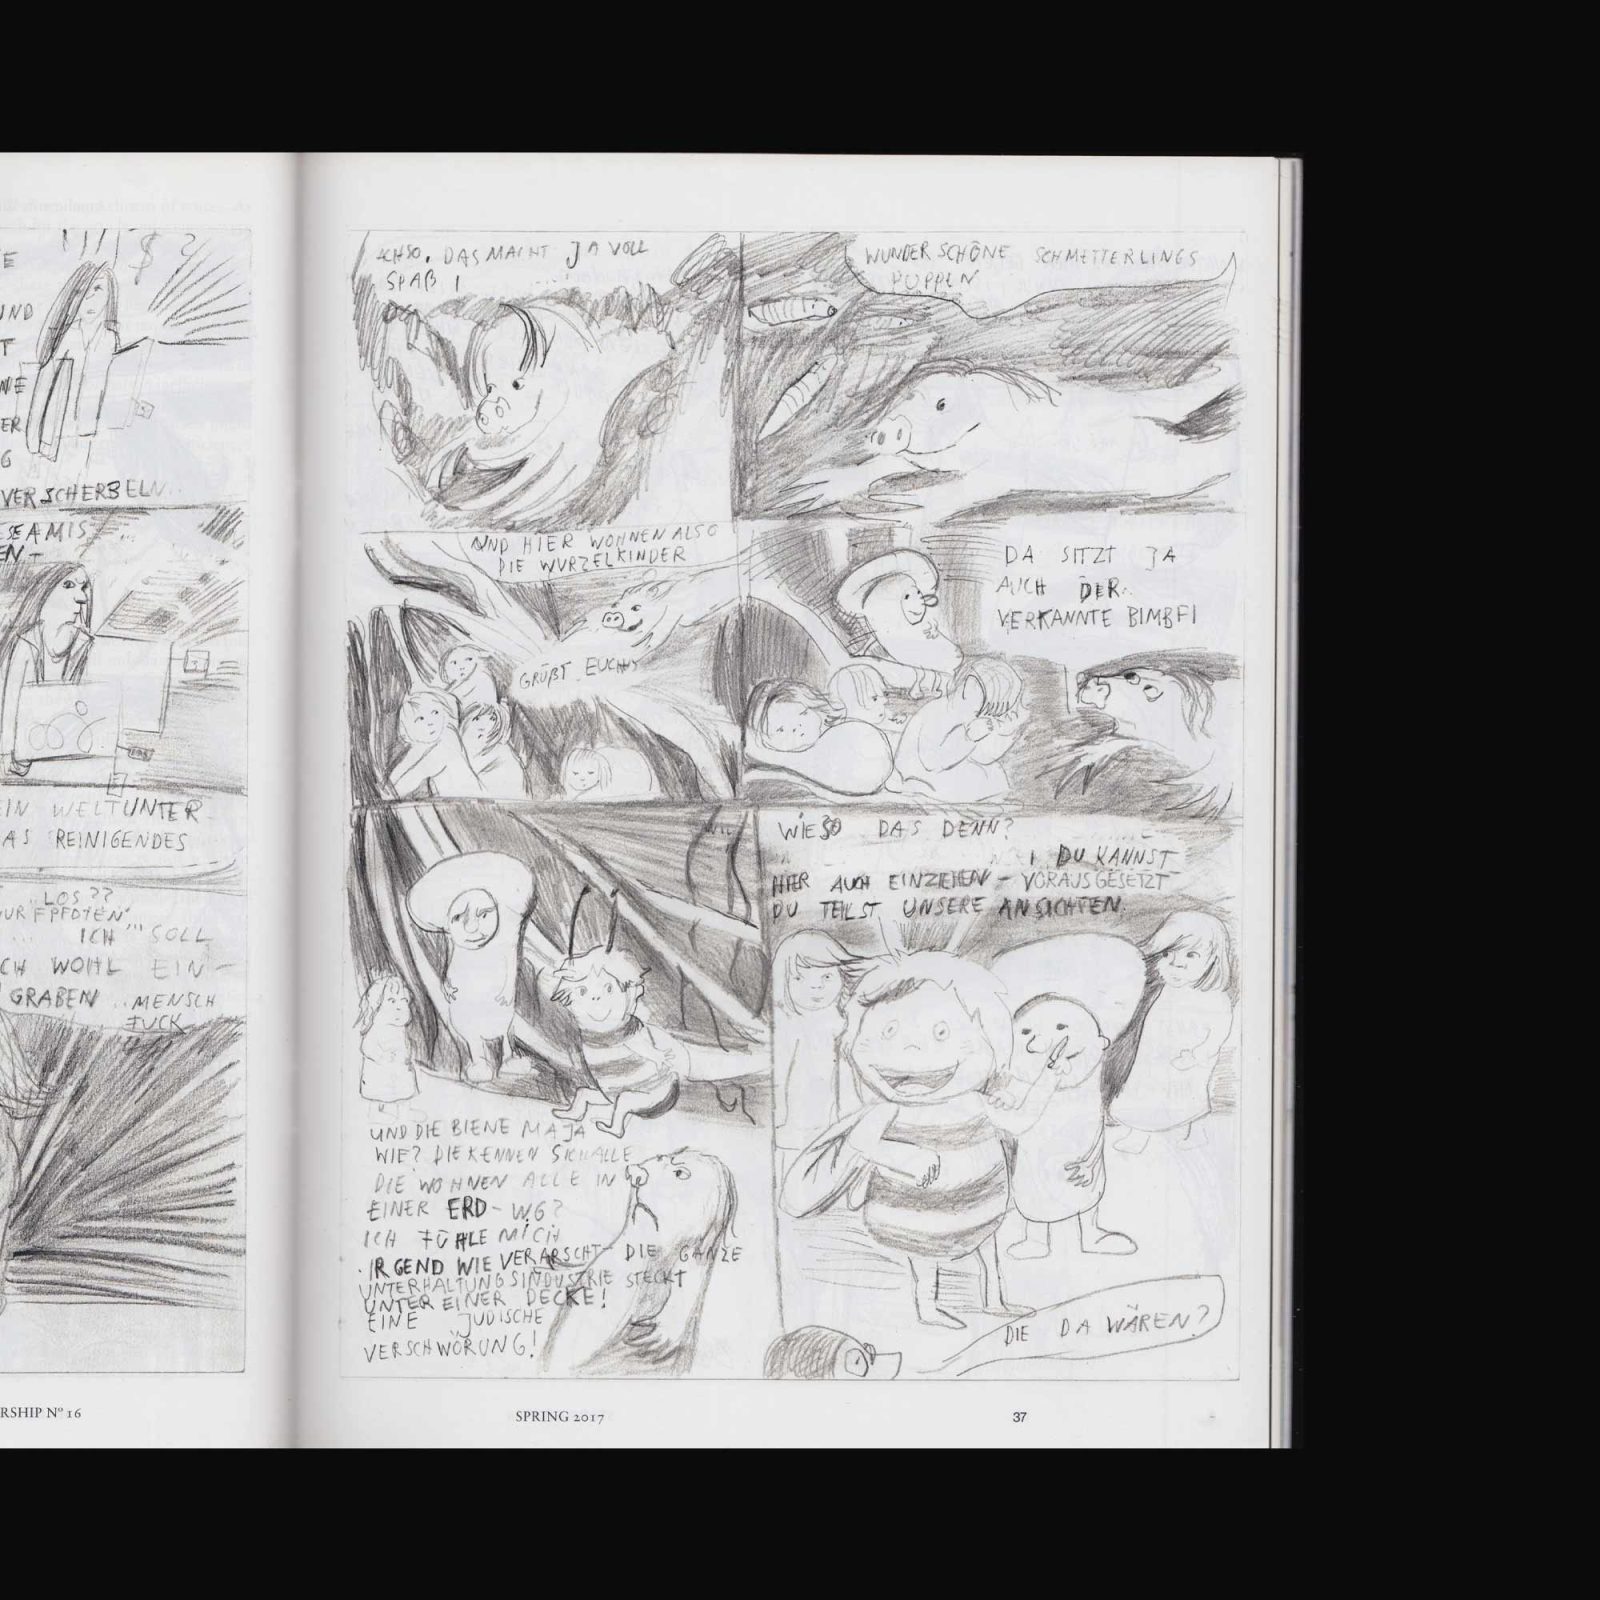 E
UND
T
NE
ER
G
VERSCHERBELN..
SEAMIS
EN-
EIN WELTUNTER
AS REINIGENDES
LOS??
NUR PFOTEN"
ICH "' SOLL
CH WOHL EIN-
GRABEN .. MENSCH
FUCK
RSHIP Nº 16
ACHSO, DAS MACHT JA VOLL
SPAß !
WUNDERSCHÖNE SCHMETTERLINGS
PUPPEN
UND HIER WOHNEN ALSO
DIE WURZELKINDER
GRÜßT EUCH
DA SITZT JA
AUCH DER..
VERKANNTE BIMBFI
UND DIE BIENE MAJA
WIE? DIE KENNEN SICH ALLE
DIE WOHNEN ALLE IN
EINER ERD-WG?
ICH FÜHLE MICH
IRGEND WIE VERARSCHT- DIE GANZE
UNTERHALTUNGSINDUSTRIE STECKT
UNTER EINER DECKE!
EINE JÜDISCHE
VERSCHWÖRUNG!
WIESO DAS DENN?
! DU KANNST
HIER AUCH EINZIEHEN - VORAUSGESETZT
DU TEILST UNSERE ANSICHTEN.
DIE DA WÄREN?
SPRING 2017
37